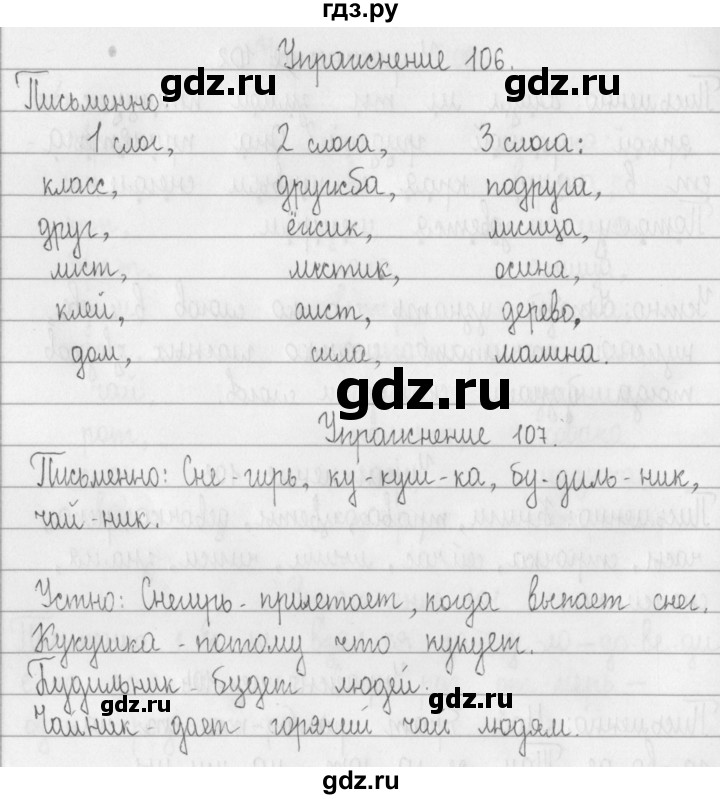 гдз.ру
Упражнение 106.
gdz.ru gdz.ru
Письменно:
1 слог, 2 слога, 3 слога:
класс, дружба, подруга,
друг, ёжик, лисица,
лист, листик, осина,
клей, аист, дерево,
дом, сила, малина.
gdz.ru
Упражнение 107.
Письменно: Сне-гирь, ку-куш-ка, бу-диль-ник,
чай-ник.
Устно: Снегирь - прилетает, когда выпает снег.
Кукушка - потому что кукует.
Будильник - будет людей.
gdz.ru gdz.ru
Чайник - дает горячий чай людям.
gdz.ru